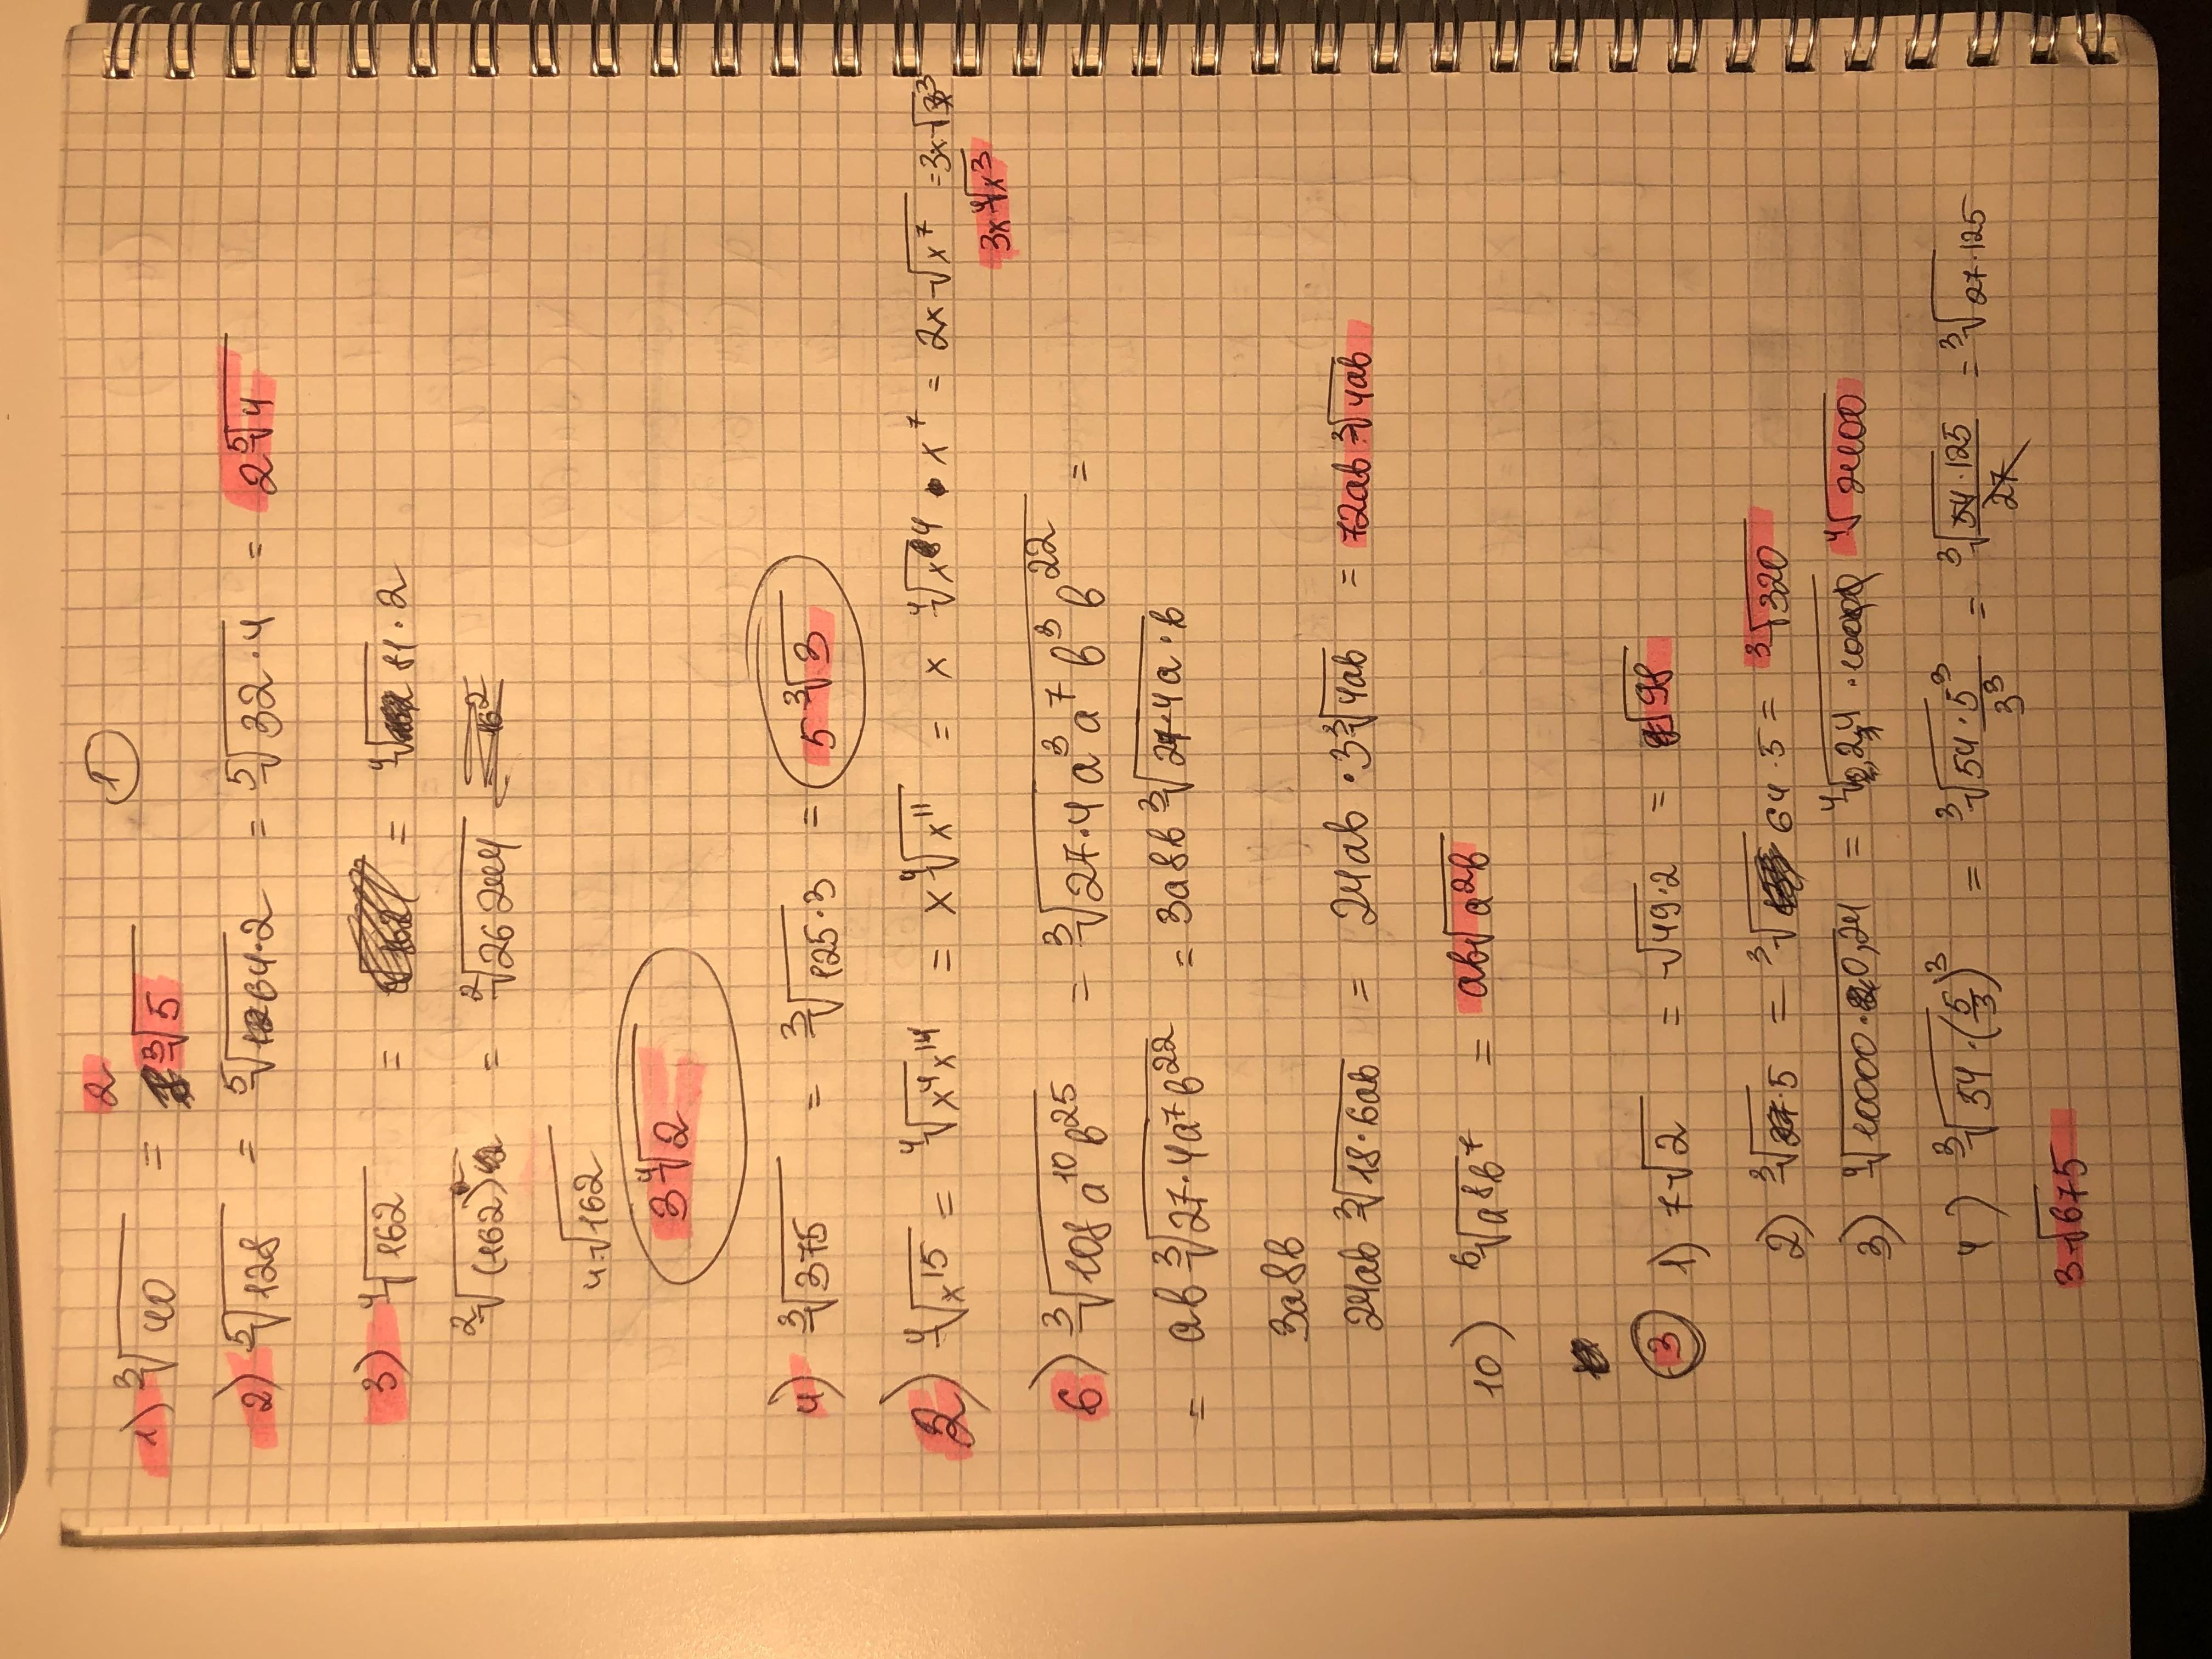 ①
1) ³√40 = 2 ³√5
2) ⁵√128 = ⁵√64·2 = ⁵√32·4 = 2⁵√4
3) ⁴√162 = = ⁴√81·2
²√(162) = ²√26244
4√162
3⁴√2
4) ³√375 = ³√125·3 = 5³√3
2) ⁴√x¹⁵ = ⁴√x⁴x¹⁴ = x⁴√x¹¹ = x ⁴√x⁴·x⁷ = 2x√x⁷ = 3x√x³
3x⁴√x³
6) ³√108a¹⁰b²⁵ = ³√27·4a³a⁷b³b²² =
= ab³√27·4a⁷b²² = 3a8b³√27·4a·b
3a8b
24ab³√18·6ab = 24ab·3³√4ab = 72ab³√4ab
10) ⁶√a⁸b⁷ = ab√a2b
③ 1) 7√2 = √49·2 = √98
2) ³√·5 = ³√64·5 = ³√320
3) ⁴√10000·0,24 = ⁴√0,24·10000 ⁴√2400
4) ³√54·(5/3)³ = ³√54·5³/3³ = ³√54·125/27 = ³√27·125
3√675